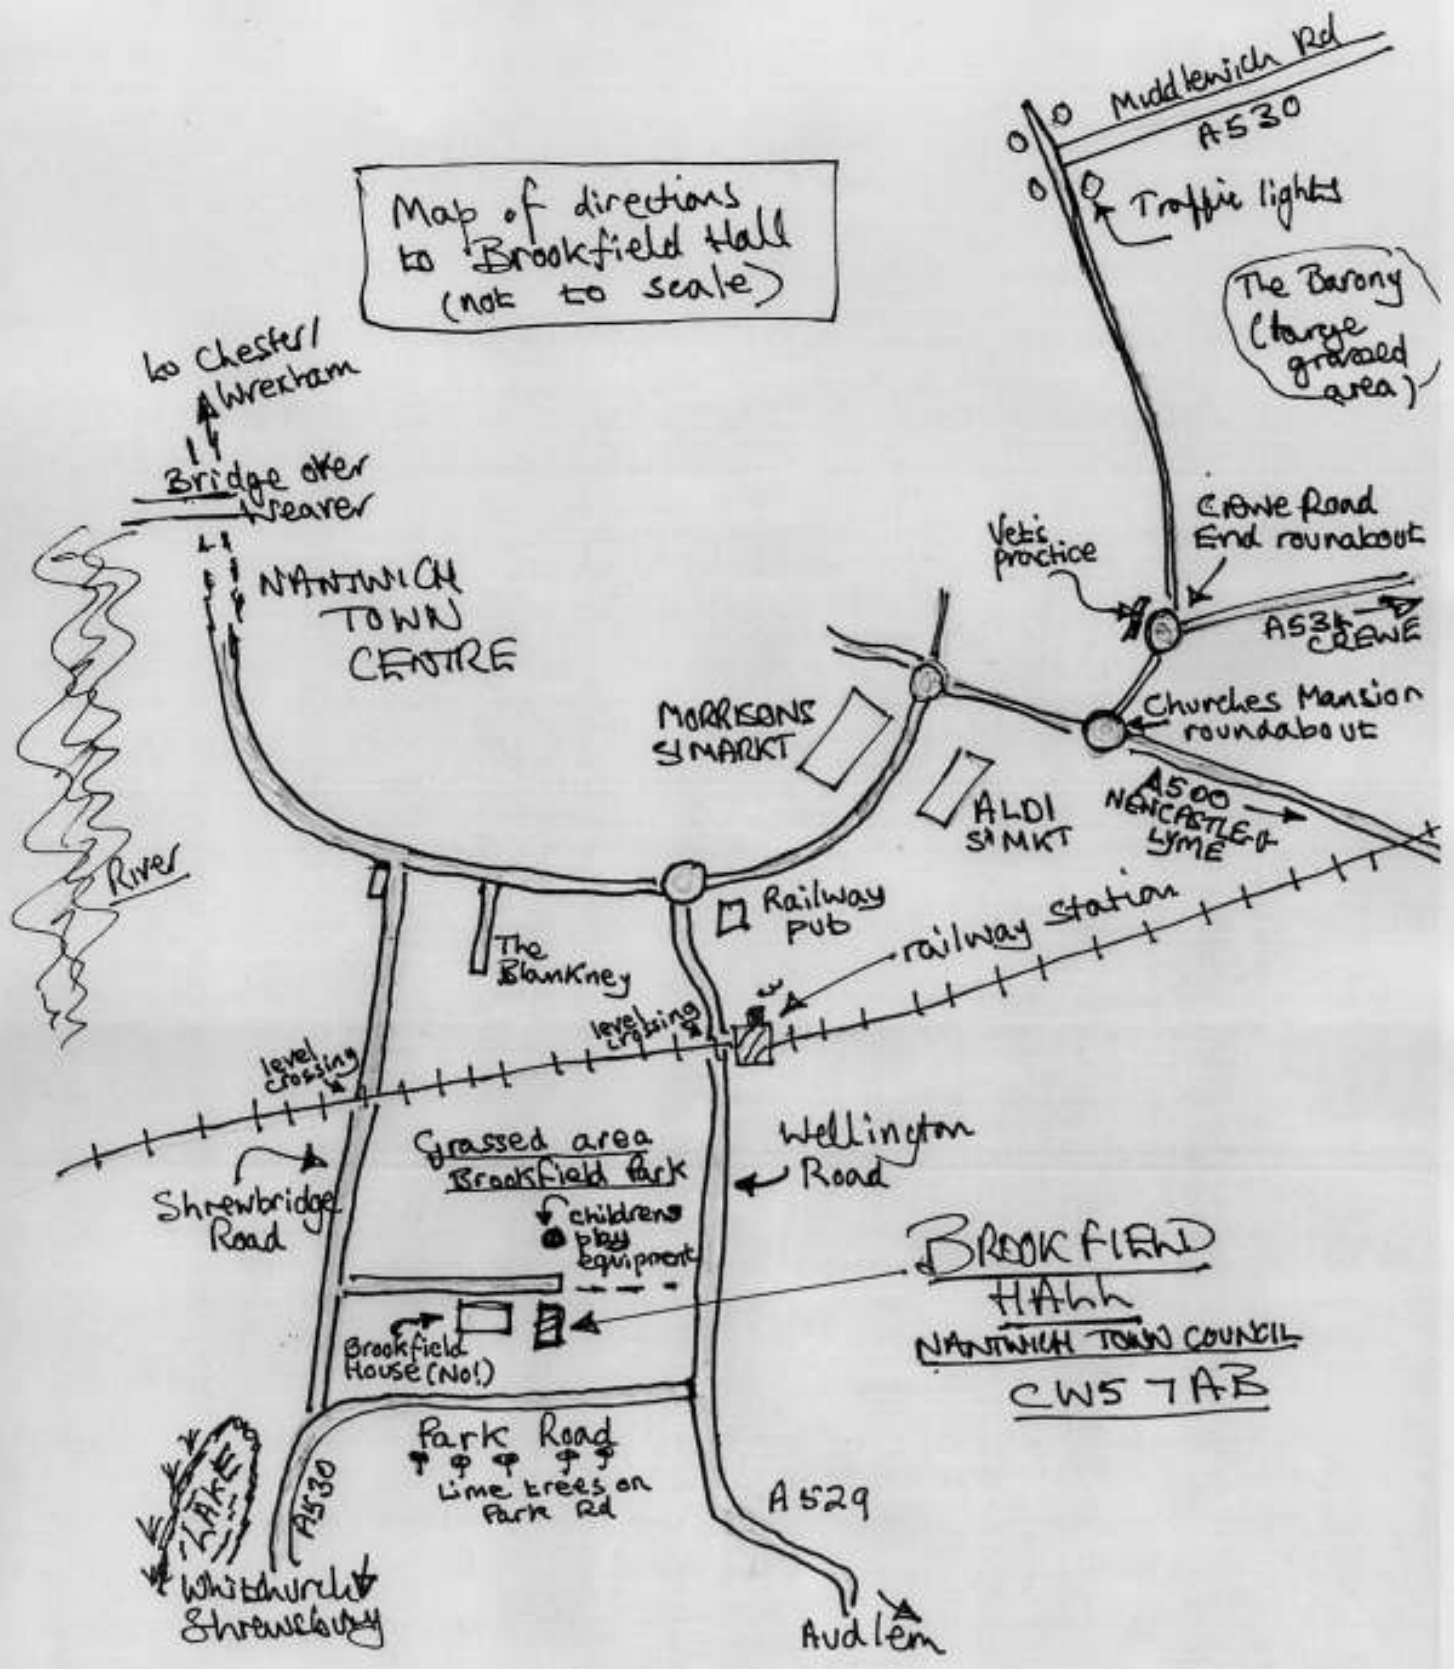 Middlewich Rd
A530
Traffic lights
Map of directions
to Brookfield Hall
(not to scale)
The Barony
(large
grassed
area)
to Chester/
Wrexham
Bridge over
Weaver
NANTWICH
TOWN
CENTRE
Vet's
practice
Crewe Road
End rounabout
A534
CREWE
MORRISONS
S/MARKT
Churches Mansion
roundabout
ALDI
S/MKT
A500
NEWCASTLE-U-
LYME
River
Railway
pub
railway station
The
Blankney
level
crossing
level
crossing
Grassed area
Brookfield Park
Wellington
Road
Shrewbridge
Road
childrens
play
equipment
BROOKFIELD
HALL
NANTWICH TOWN COUNCIL
CW5 7AB
Brookfield
House (No!)
Park Road
Lime trees on
Park Rd
LAKE
A530
A529
Whitchurch
Shrewsbury
Audlem